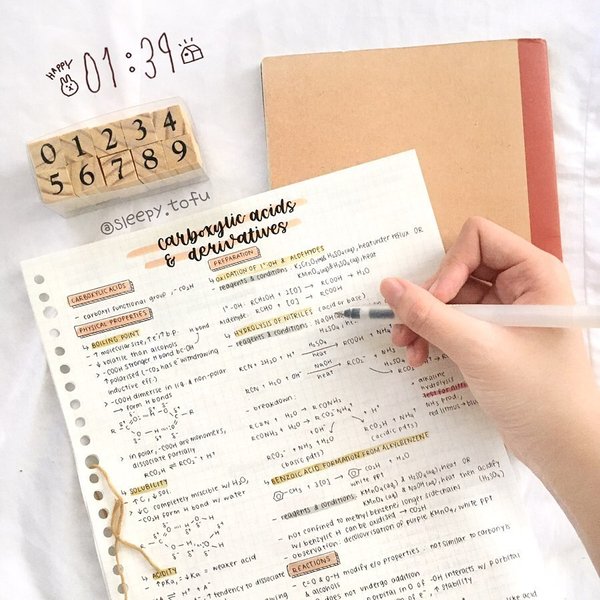 HAPPY
01:39
0 1 2 3 4
5 6 7 8 9
@sleepy.tofu
carboxylic acids
& derivatives
CARBOXYLIC ACIDS
- carboxyl functional group, -CO₂H
PHYSICAL PROPERTIES
↳ BOILING POINT
- ↑ molecular size, ↑ b.p.
- ↓ volatile than alcohols
H bond
- COOH stronger H bond bc -OH
↑ polarised
withdrawing
inductive eff.)
> -COOH dimerise in liq & non-polar
→ form H bonds
> in polar, -COOH are monomers,
dissociate partially
RCO₂H ⇌ RCO₂⁻ + H⁺
↳ SOLUBILITY
- ↑ C, ↓ sol.
> ↓C completely miscible w/ H₂O,
- CO₂H form H bond w/ water
↳ ACIDITY
- ↑pKa, ↓Ka = weaker acid
↑ tendency to dissociate
PREPARATION
↳ OXIDATION OF 1° -OH & ALDEHYDES
- reagents & conditions: K₂Cr₂O₇ and H₂SO₄(aq), heat under reflux OR
KMnO₄ and H₂SO₄(aq), heat
1° -OH: RCH₂OH + 2[O] → RCOOH + H₂O
Aldehyde: RCHO + [O] → RCOOH
↳ HYDROLYSIS OF NITRILES (acid or base)
- reagents & conditions: NaOH
H₂SO₄
RCN + 2H₂O + H⁺ H₂SO₄ heat → RCOOH + NH₄⁺
RCN + H₂O + OH⁻ NaOH heat → RCO₂⁻ + NH₃
- breakdown:
RCN + H₂O → RCONH₂
RCONH₂ + H₂O → RCO₂⁻NH₄⁺
+ OH⁻ + H⁺
RCO₂⁻ + NH₃ + H₂O RCO₂H + NH₄⁺
(basic pdts) (acidic pdts)
- alkaline
hydrolysis
test for
NH₃ prod.,
red litmus → blue
↳ BENZOIC ACID FORMATION FROM ALKYLBENZENE
CH₃ + 3[O] → CO₂H + H₂O
white ppt
- reagents & conditions: KMnO₄(aq) & H₂SO₄(aq), heat OR
KMnO₄(aq) & NaOH(aq), heat then acidify
(H₂SO₄)
- not confined to methylbenzene, longer sidechain
w/ benzylic H can be oxidised → CO₂H
- observation: decolourisation of purple KMnO₄, white ppt
REACTIONS
- C=O & O-H modify e/o properties ∴ not similar to carbonyls
& alcohols
- does not undergo addition
p orbital in O of -OH interacts w/ p orbital
↑ stability
like acid